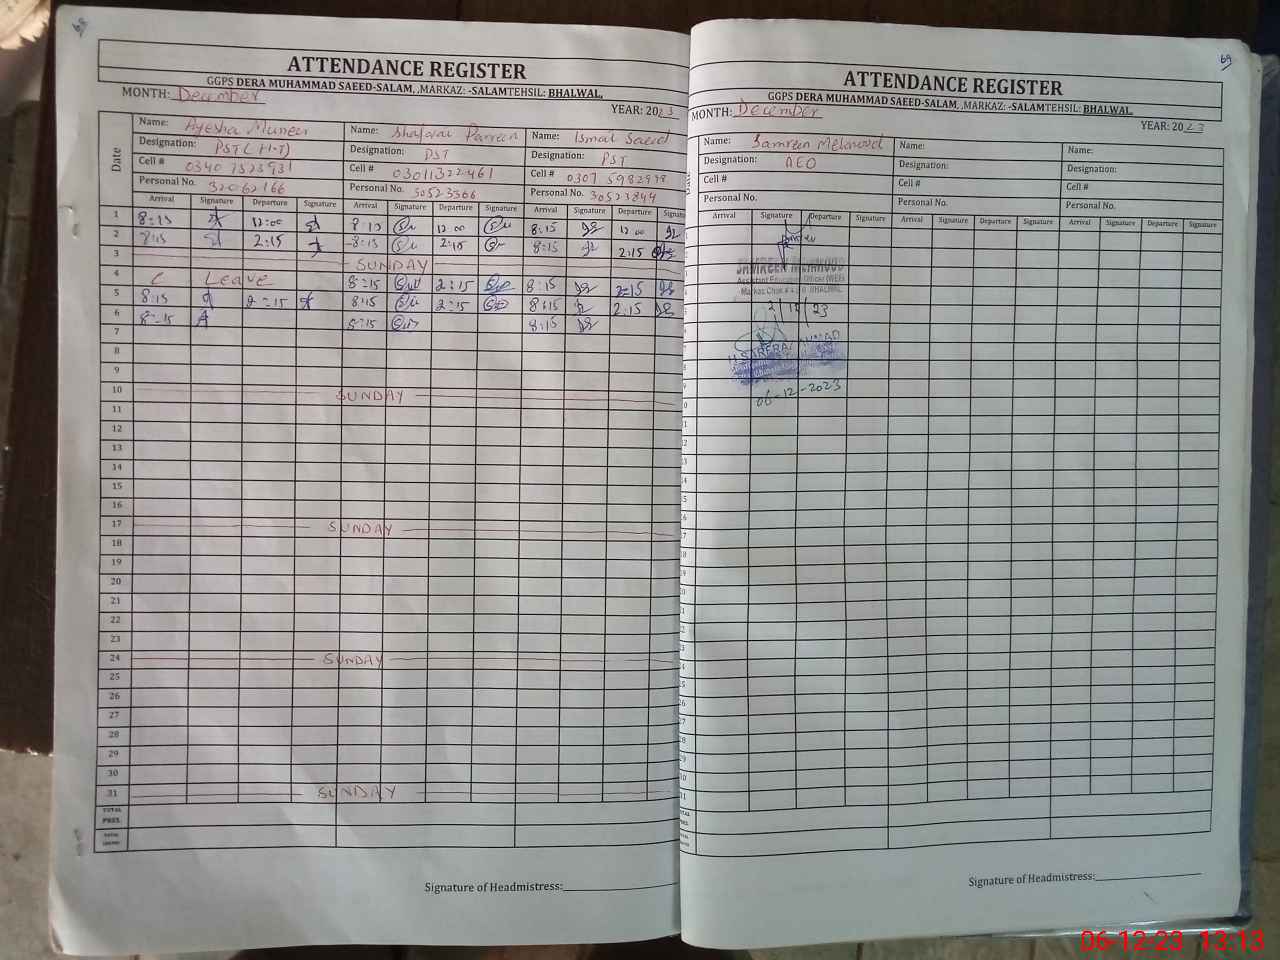 68
ATTENDANCE REGISTER
GGPS DERA MUHAMMAD SAEED-SALAM, ,MARKAZ: -SALAMTEHSIL: BHALWAL,
MONTH: December YEAR: 2023
Date
Name: Ayesha Muneer Name: Shafaqat Parveen Name: Ismat Saeed
Designation: PST (H-T) Designation: PST Designation: PST
Cell # 0340 7523931 Cell # 03011322461 Cell # 0307 5982998
Personal No. 32062166 Personal No. 30523566 Personal No. 30523844
Arrival Signature Departure Signature Arrival Signature Departure Signature Arrival Signature Departure Signature
1 8:15 12:00 8:15 12 00 8:15 12 00
2 8:15 2:15 8:15 2:15 8:15 2:15
3 SUNDAY
4 C Leave 8:15 2:15 8:15 2:15
5 8:15 2:15 8:15 2:15 8:15 2:15
6 8:15 8:15 8:15
7
8
9
10 SUNDAY
11
12
13
14
15
16
17 SUNDAY
18
19
20
21
22
23
24 SUNDAY
25
26
27
28
29
30
31 SUNDAY
TOTAL
PRES.
Signature of Headmistress:
69
ATTENDANCE REGISTER
GGPS DERA MUHAMMAD SAEED-SALAM, ,MARKAZ: -SALAMTEHSIL: BHALWAL,
MONTH: December YEAR: 2023
Name: Samreen Mehmood Name: Name:
Designation: AEO Designation: Designation:
Cell # Cell # Cell #
Personal No. Personal No. Personal No.
Arrival Signature Departure Signature Arrival Signature Departure Signature Arrival Signature Departure Signature
SAMREEN MEHMOOD
Assistant Education Officer (WEE)
BHALWAL
2/12/23
06-12-2023
Signature of Headmistress:
06-12-23 13:13